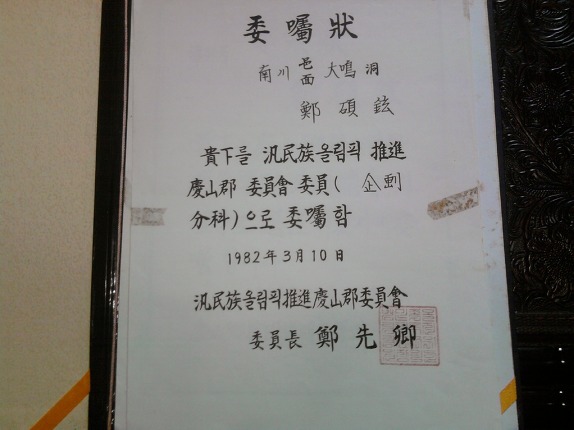 委囑狀
南川 邑面 大鳴 洞
鄭碩鉉
貴下를 汎民族올림픽 推進
慶山郡 委員會 委員( 企劃
分科)으로 委囑함
1982年 3月 10日
汎民族올림픽推進慶山郡委員會
委員長 鄭先卿